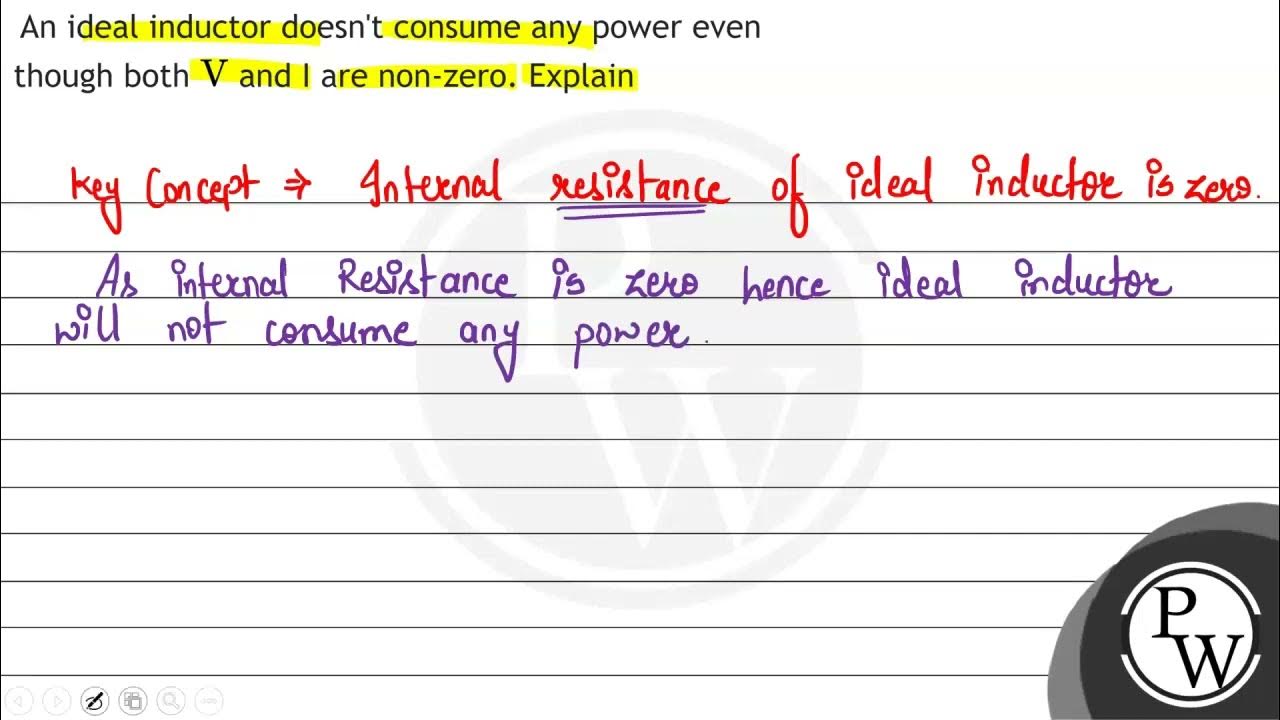 An ideal inductor doesn't consume any power even
though both V and I are non-zero. Explain
Key Concept ⇒ Internal resistance of ideal inductor is zero.
As internal Resistance is zero hence ideal inductor
will not consume any power.
PW
PW